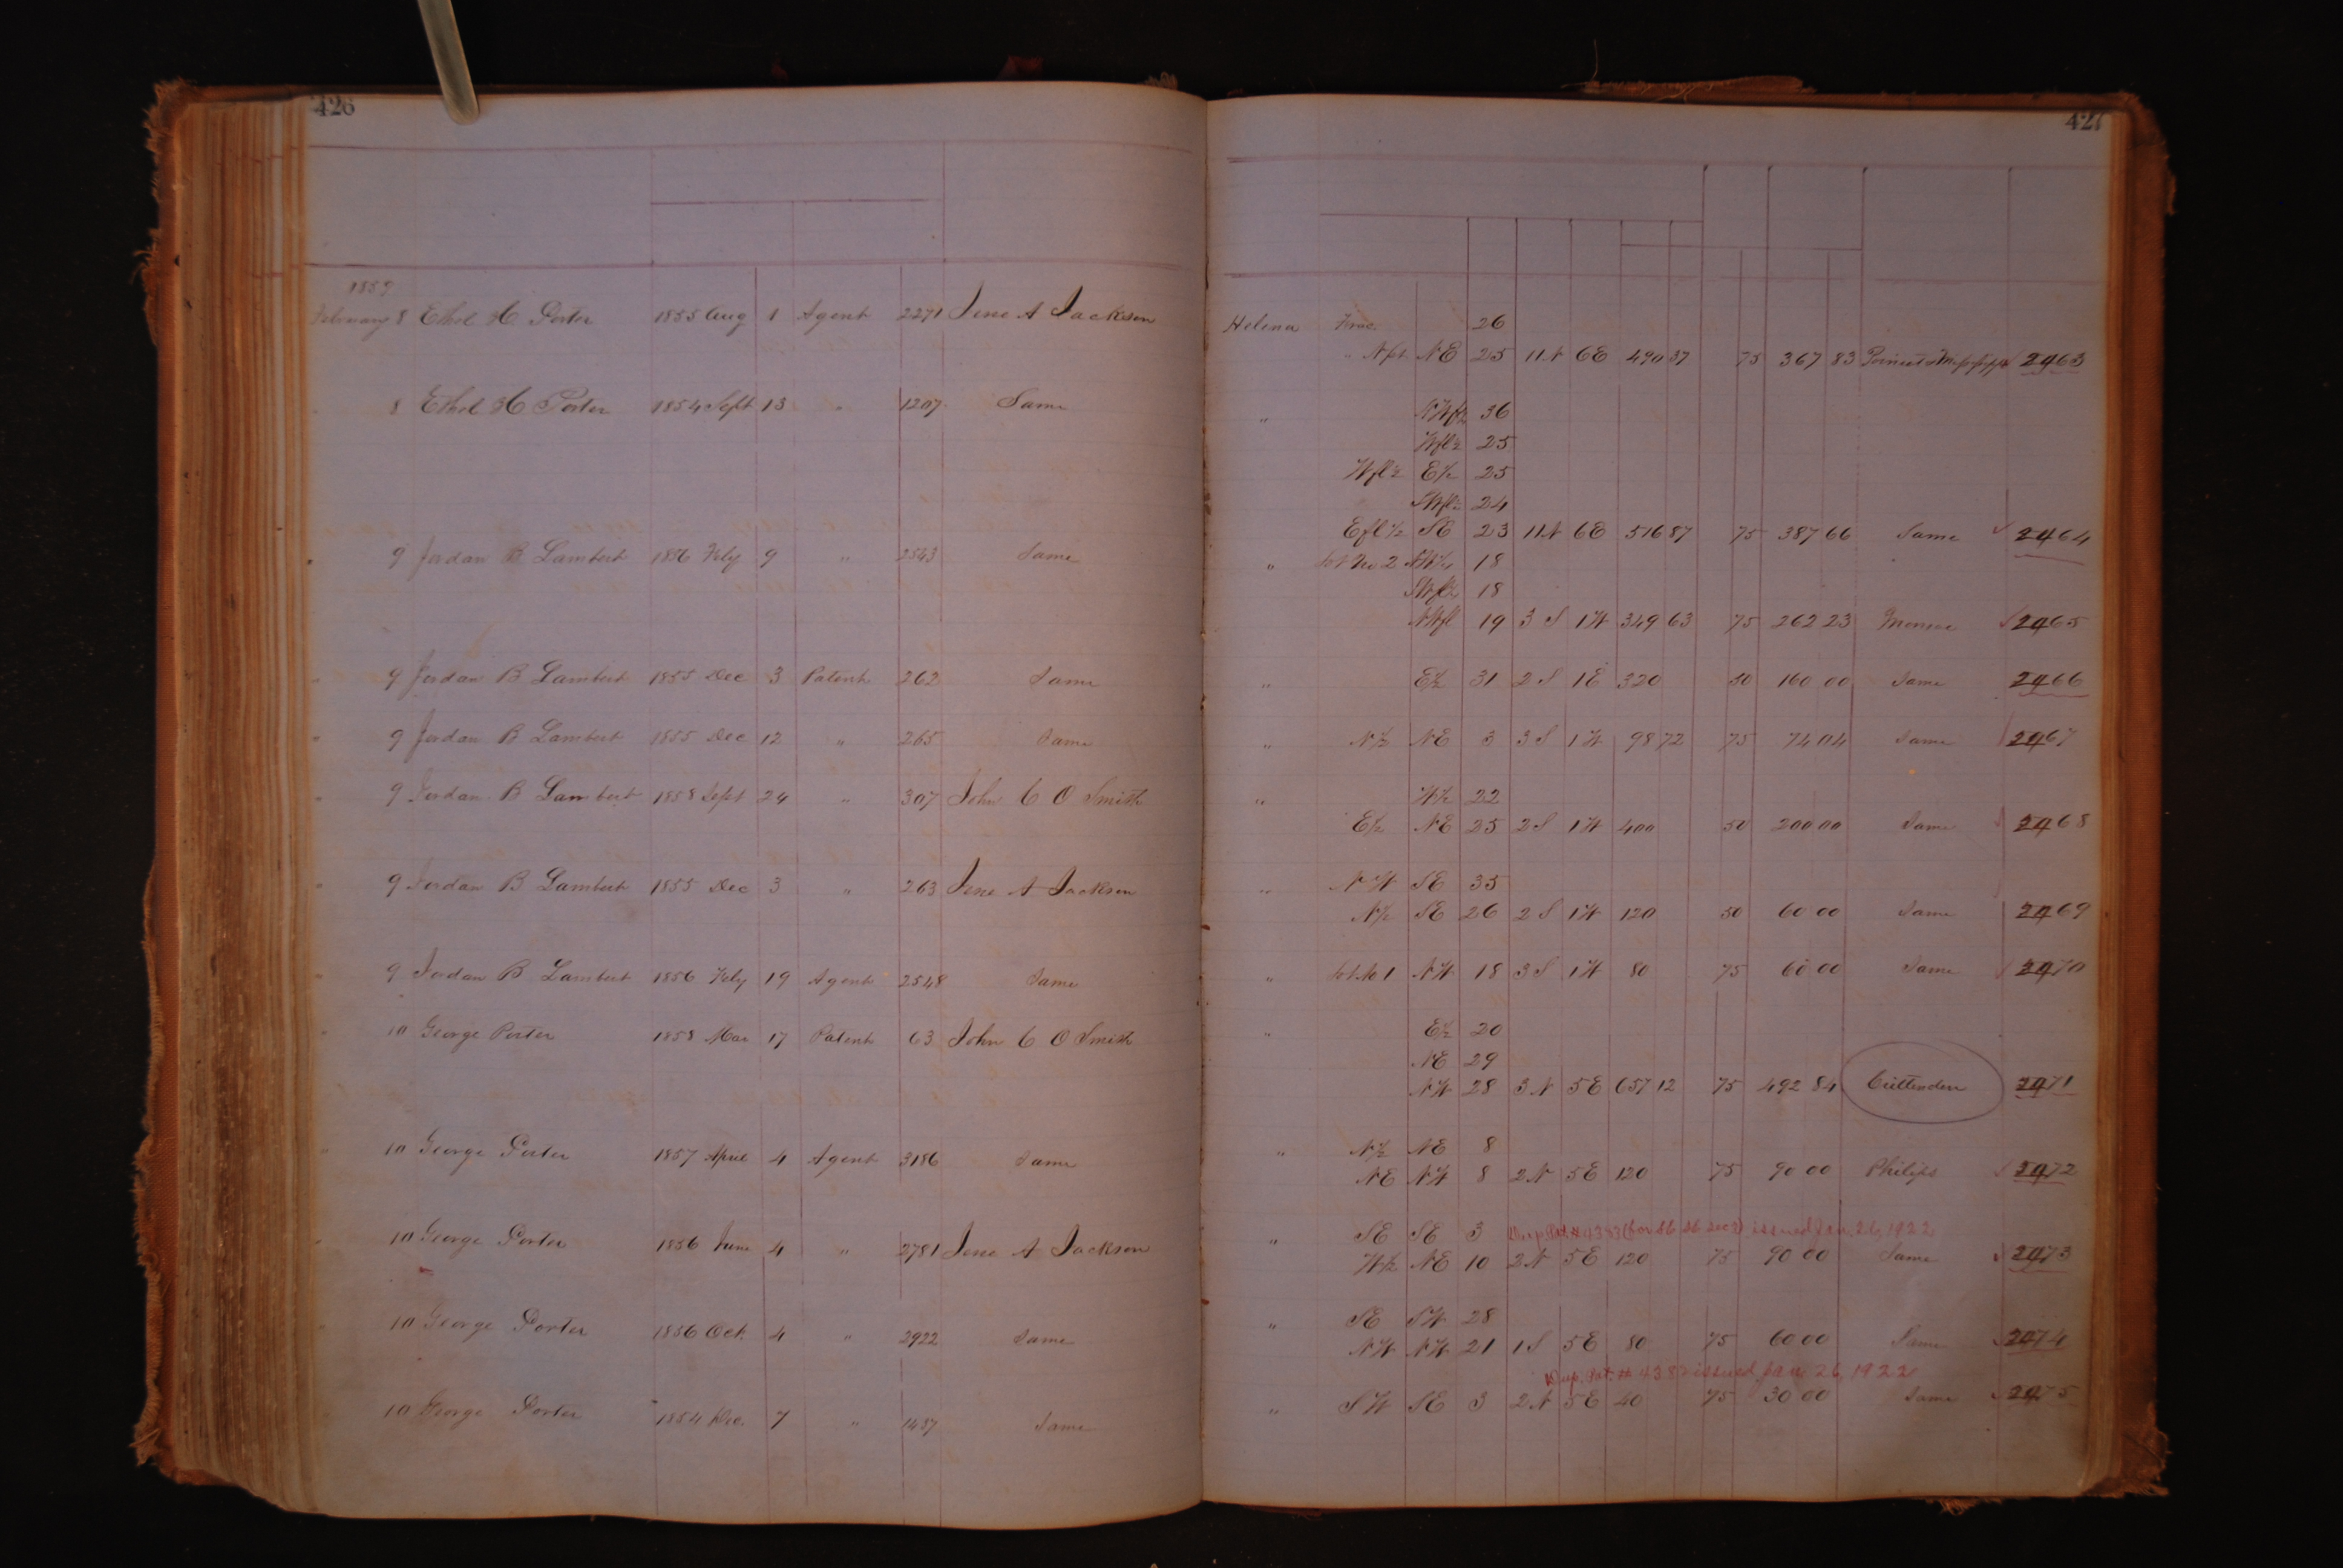 426
1859
February 8 Ethel H Porter 1855 Aug 1 Agent 2271 Jesse A Jackson
8 Ethel H Porter 1854 Sept 13 " 1207 Same
9 Jordan B Lambert 1856 Feby 9 " 2543 Same
" 9 Jordan B Lambert 1855 Dec 3 Patent 262 Same
" 9 Jordan B Lambert 1855 Dec 12 " 265 Same
" 9 Jordan B Lambert 1858 Sept 24 " 307 John C O Smith
" 9 Jordan B Lambert 1855 Dec 3 " 263 Jesse A Jackson
" 9 Jordan B Lambert 1856 Feby 19 Agent 2548 Same
" 10 George Porter 1858 Mar 17 Patent 63 John C O Smith
" 10 George Porter 1857 April 4 Agent 3186 Same
" 10 George Porter 1856 June 4 " 2781 Jesse A Jackson
" 10 George Porter 1856 Oct 4 " 2922 Same
" 10 George Porter 1854 Dec. 7 " 1437 Same
427
Helena Frac. 26
" N pt NE 25 11N 6E 490 37 75 367 83 Poinsett & Mississippi 2463
" NW fl ½ 36
W fl ½ 25
W fl ½ E ½ 25
SW fl ½ 24
E fl ½ SE 23 11N 6E 516 87 75 387 66 Same 2464
" Lot No 2 NW ¼ 18
SW fl ½ 18
NW fl 19 3 S 1W 349 63 75 262 23 Monroe 2465
" E ½ 31 2 S 1E 320 50 160 00 Same 2466
" N ½ NE 3 3 S 1W 98 72 75 74 04 Same 2467
" W ½ 22
E ½ NE 25 2 S 1W 400 50 200 00 Same 2468
" NW SE 35
N ½ SE 26 2 S 1W 120 50 60 00 Same 2469
" Lot No 1 NW 18 3 S 1W 80 75 60 00 Same 2470
" E ½ 20
NE 29
NW 28 3 N 5E 657 12 75 492 84 Crittenden 2471
" N ½ NE 8
NE NW 8 2 N 5E 120 75 90 00 Philips 2472
" SE SE 3 Dup. Pat. # 4383 (for SE SE Sec 3) issued Jan. 26, 1922
W ½ NE 10 2 N 5E 120 75 90 00 Same 2473
" SE SW 28
NW NW 21 1 S 5E 80 75 60 00 Same 2474
Dup. Pat. # 4382 issued Jan 26, 1922
" SW SE 3 2 N 5E 40 75 30 00 Same 2475